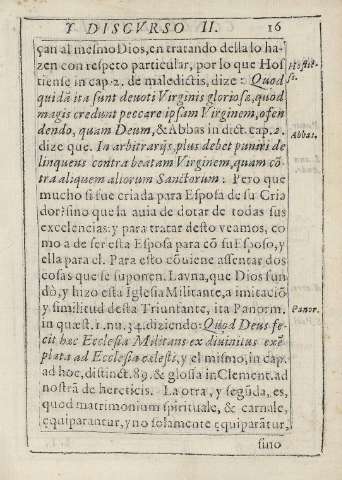 Y DISCVRSO II. 16
çan al mesmo Dios, en tratando della lo ha-
zen con respeto particular, por lo que Hos
tiense in cap. 2. de maledictis, dize: Quod
quidã ita sunt deuoti Virginis gloriosæ, quod
magis credunt peccare ipsam Virginem, ofen
dendo, quam Deum, & Abbas in dict. cap. 2.
dize que. In arbitrarijs, plus debet puniri de
linquens contra beatam Virginem, quam cõ
tra aliquem aliorum Sanctorum: Pero que
mucho si fue criada para Esposa de su Cria
dor? sino que la auia de dotar de todas sus
excelencias: y para tratar desto veamos, co
mo a de ser esta Esposa para cõ su Esposo, y
ella para el. Para esto cõuiene assentar dos
cosas que se suponen. La vna, que Dios fun
dò, y hizo esta Iglesia Militante, a imitaciõ
y similitud desta Triunfante, ita Panorm.
in quæst. 1. nu. 34. diziendo: Quod Deus fe-
cit hæc Ecclesia Militans ex diuinitus exẽ
plata ad Ecclesia cælesti, y el mismo, in cap.
ad hoc, distinct. 89. & glossa in Clement. ad
nostrã de hereticis. La otra, y segũda, es,
quod matrimonium spirituale, & carnale,
equiparantur, y no solamente equiparãtur,
sino
Hostiẽ-
se.
Abbat.
Panor.